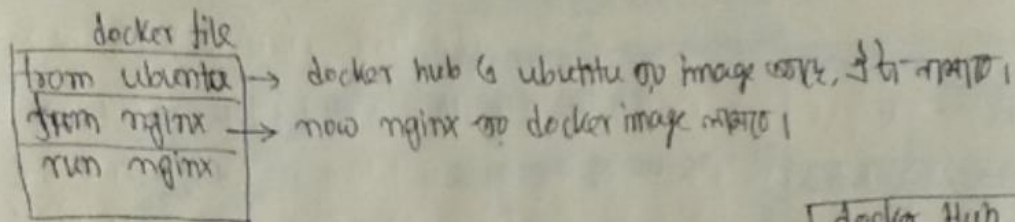 docker file
from ubuntu → docker hub এ ubuntu এর image আছে, ঐটা নামাও।
from nginx → now nginx এর docker image নামাও।
run nginx
docker Hub